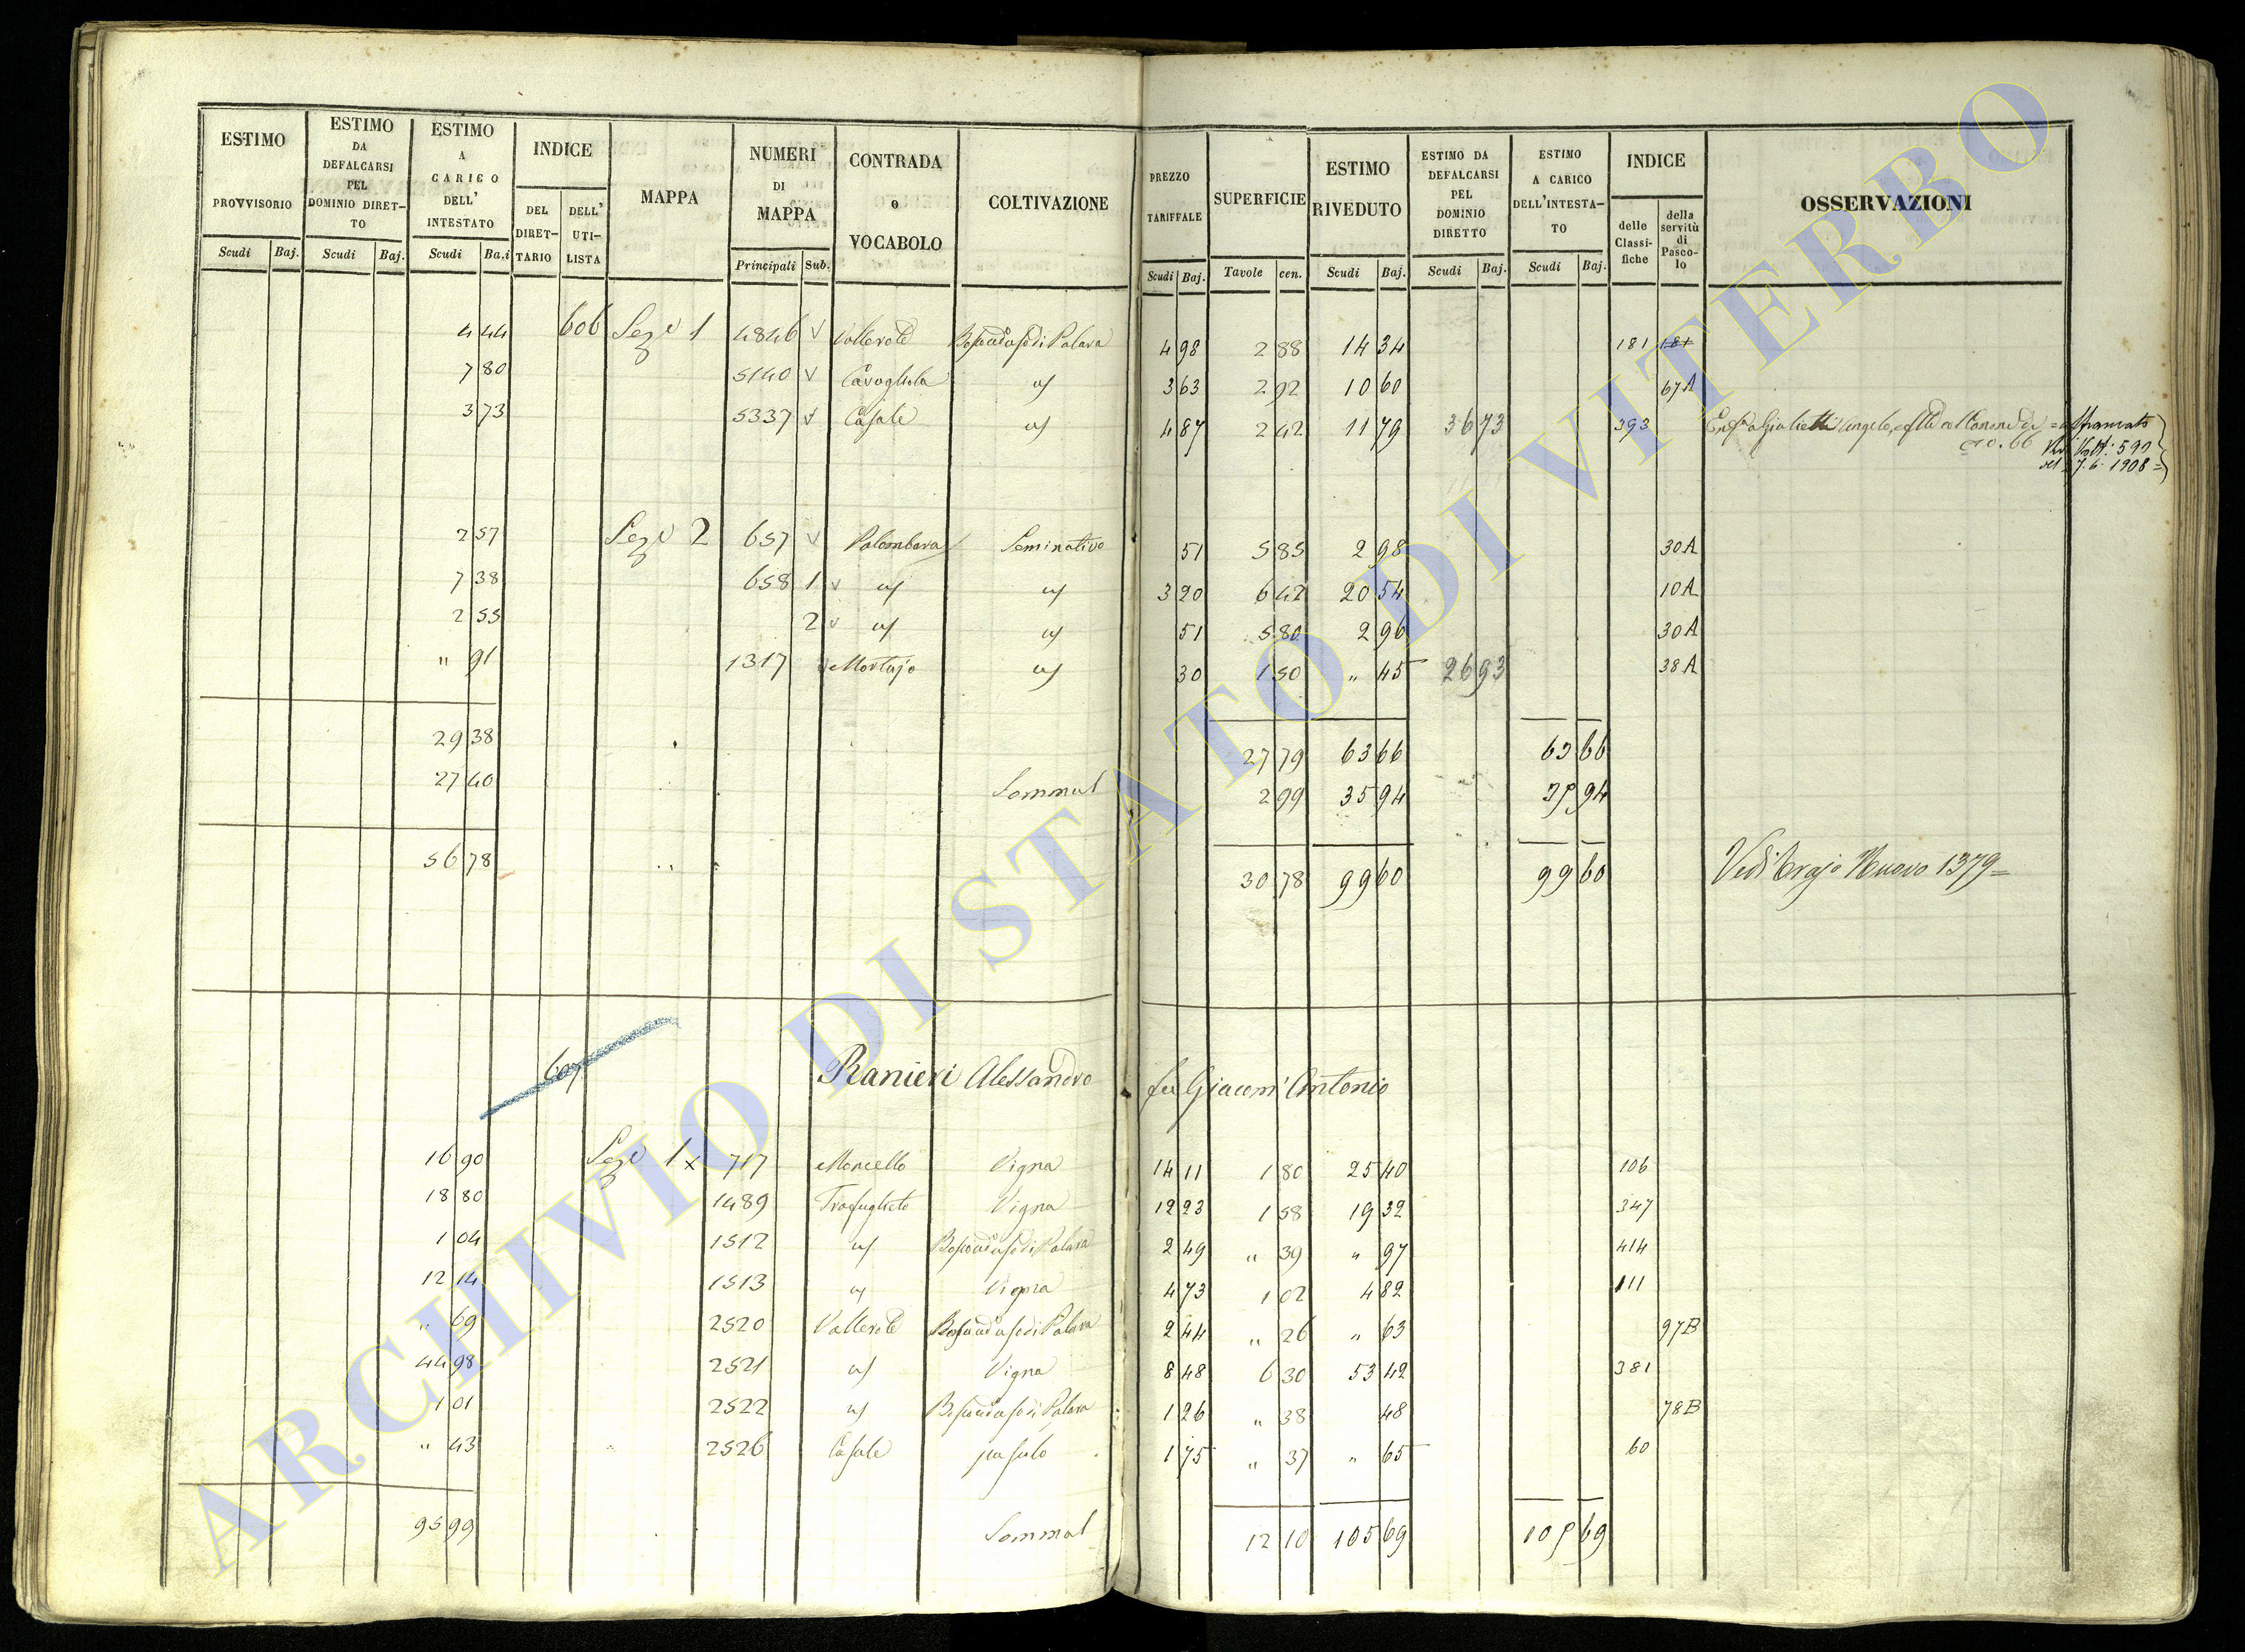 ESTIMO PROVVISORIO Scudi Baj.
ESTIMO DA DEFALCARSI PEL DOMINIO DIRETTO Scudi Baj.
ESTIMO A CARICO DELL' INTESTATO Scudi Ba.i
INDICE DEL DIRET-TARIO DELL' UTI-LISTA
MAPPA
NUMERI DI MAPPA Principali Sub.
CONTRADA o VOCABOLO
COLTIVAZIONE
PREZZO TARIFFALE Scudi Baj.
SUPERFICIE Tavole cen.
ESTIMO RIVEDUTO Scudi Baj.
ESTIMO DA DEFALCARSI PEL DOMINIO DIRETTO Scudi Baj.
ESTIMO A CARICO DELL'INTESTA-TO Scudi Baj.
INDICE delle Classi-fiche della servitù di Pasco-lo
OSSERVAZIONI
4 44 606 Sez e 1 4846 Vallerote 4 98 2 88 14 34 181 181
7 80 5140 3 63 2 92 10 60 67A
3 73 5337 Casale 4 87 2 42 11 79 36 73 393
7. 6. 1908
2 57 Sez e 2 657 Palombara Seminativo 51 5 85 2 98 30A
7 38 658 1 3 20 6 42 20 54 10A
2 55 2 51 5 80 2 96 30A
" 91 1317 30 1 50 " 45 26 93 38A
29 38 27 79 63 66 63 66
27 40 Somma 2 99 35 94 35 94
56 78 30 78 99 60 99 60 Vedi Nuovo 1379 =
607 Ranieri Alessandro fu Giacom' Antonio
16 90 Sez e 1 x 717 Moncello Vigna 14 11 1 80 25 40 106
18 80 1489 Trafuglieto Vigna 12 23 1 58 19 32 347
1 04 1512 2 49 " 39 " 97 414
12 14 1513 Vigna 4 73 1 02 4 82 111
" 69 2520 Vallerote 2 44 " 26 " 63 97B
44 98 2521 Vigna 8 48 6 30 53 42 381
1 01 2522 1 26 " 38 48 78B
" 43 2526 Casale pascolo 1 75 " 37 " 65 60
95 99 Somma 12 10 105 69 105 69
ARCHIVIO DI STATO DI VITERBO